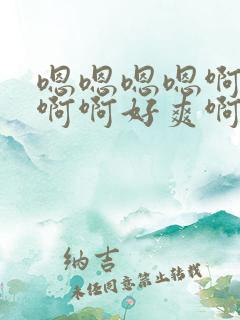 嗯嗯嗯嗯啊
啊啊好爽啊
纳吉
未经同意禁止转载